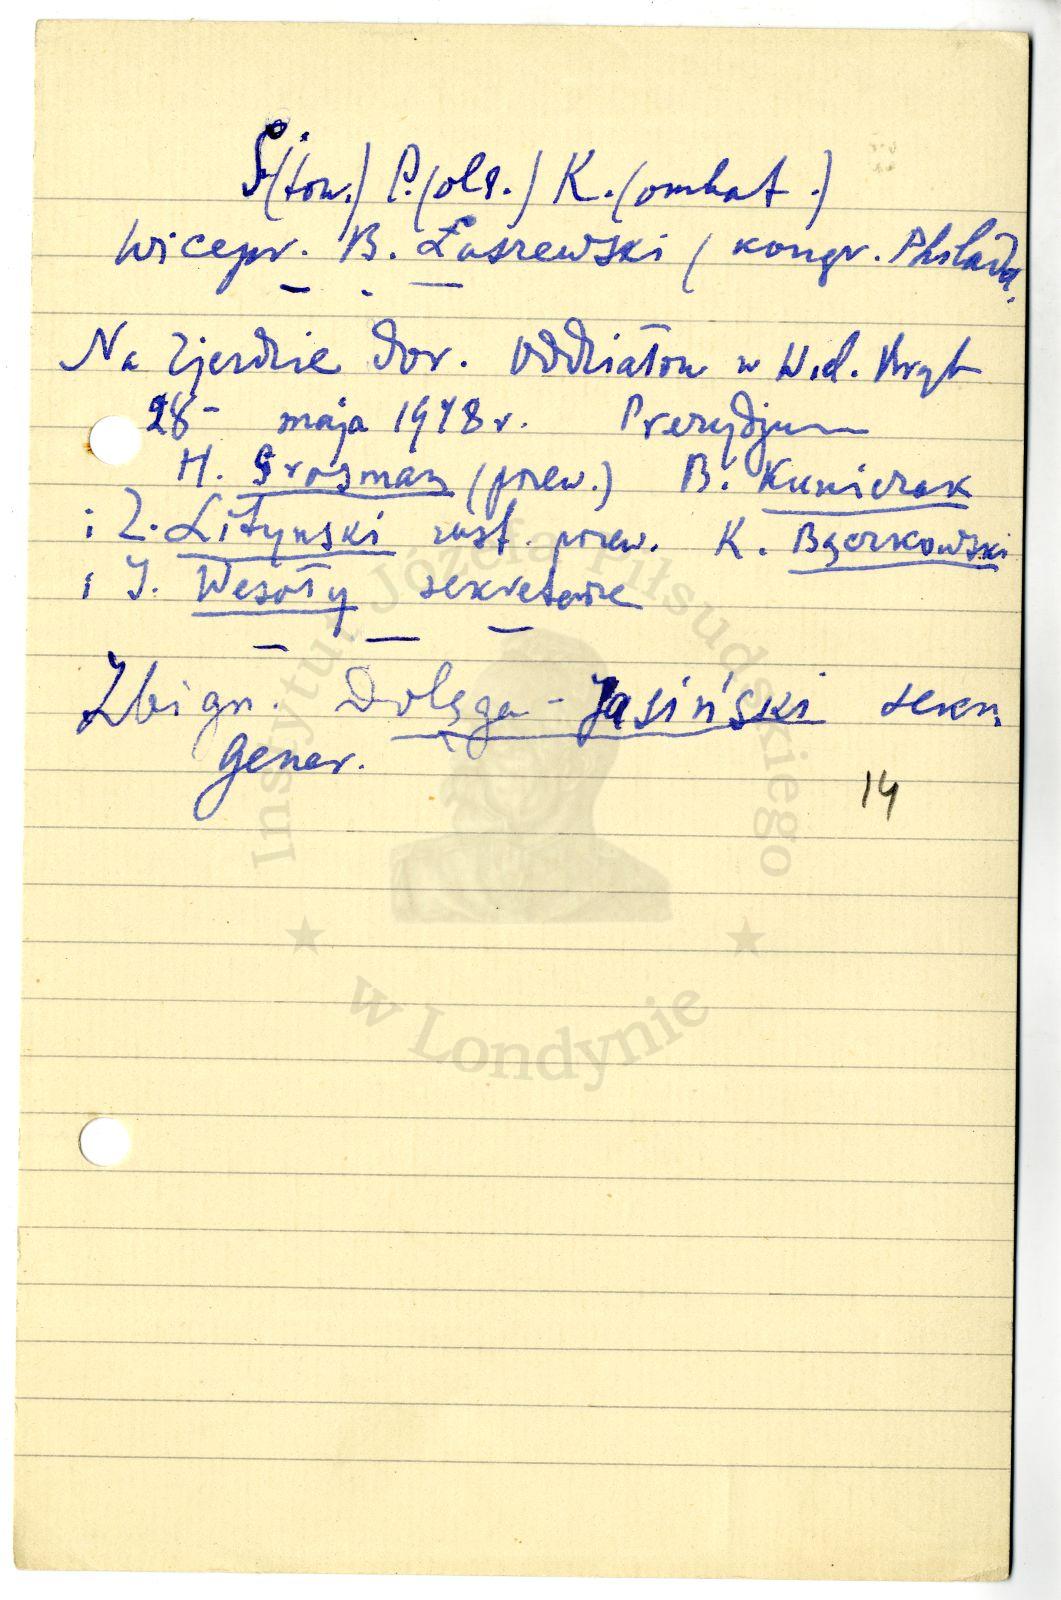 S(tow.) P.(ols.) K.(ombat.)
Wicepr. B. Łaszewski (kongr. Philad.
Na Zjeździe dor. Oddziałów w Wiel. Bryt
28- maja 1978 r. Prezydjum
H. Grosman (przew.) B. Kunierzak
i Z. Lityński zast. przew. K. Bączkowski
i J. Wesoły sekretarze
Zbign. Dołęga-Jasiński sekr.
gener.
14
Instytut Józefa Piłsudskiego
w Londynie